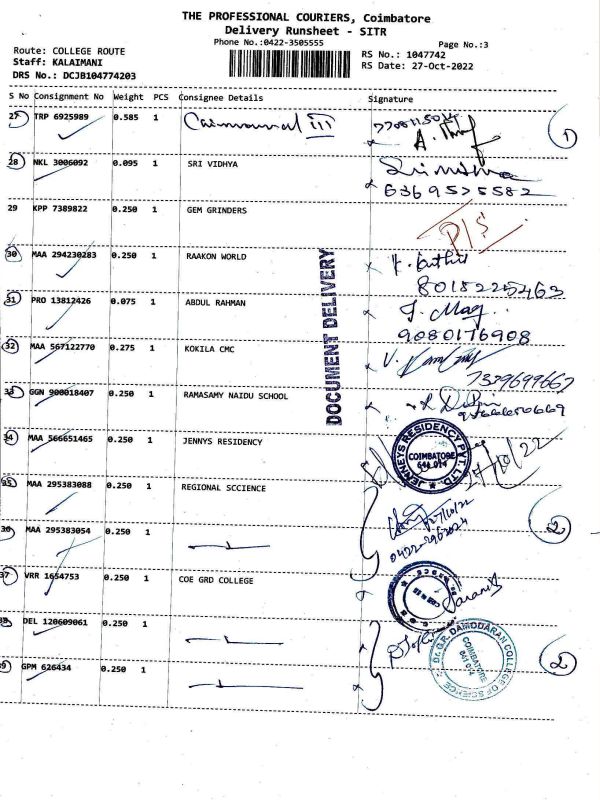 THE PROFESSIONAL COURIERS, Coimbatore
Delivery Runsheet - SITR
Phone No.:0422-3505555
Page No.:3
Route: COLLEGE ROUTE
Staff: KALAIMANI
DRS No.: DCJB104774203
RS No.: 1047742
RS Date: 27-Oct-2022
S No Consignment No Weight PCS Consignee Details Signature
27 TRP 6925989 0.585 1 III
1
28 NKL 3006092 0.095 1 SRI VIDHYA
6369525582
29 KPP 7389822 0.250 1 GEM GRINDERS
P/S
30 MAA 294230283 0.250 1 RAAKON WORLD
8018225463
31 PRO 13812426 0.075 1 ABDUL RAHMAN
9080176908
32 MAA 567122770 0.275 1 KOKILA CMC
7339699667
33 GGN 900018407 0.250 1 RAMASAMY NAIDU SCHOOL
34 MAA 566651465 0.250 1 JENNYS RESIDENCY
35 MAA 295383088 0.250 1 REGIONAL SCCIENCE
36 MAA 295383054 0.250 1
37 VRR 1654753 0.250 1 COE GRD COLLEGE
38 DEL 120609061 0.250 1
39 GPM 626434 0.250 1
DOCUMENT DELIVERY
JENNEYS RESIDENCY PVT. LTD.
COIMBATORE
641 014
27/10/22
2
Dr. G.R. DAMODARAN COLLEGE OF SCIENCE
COIMBATORE
641 014
2